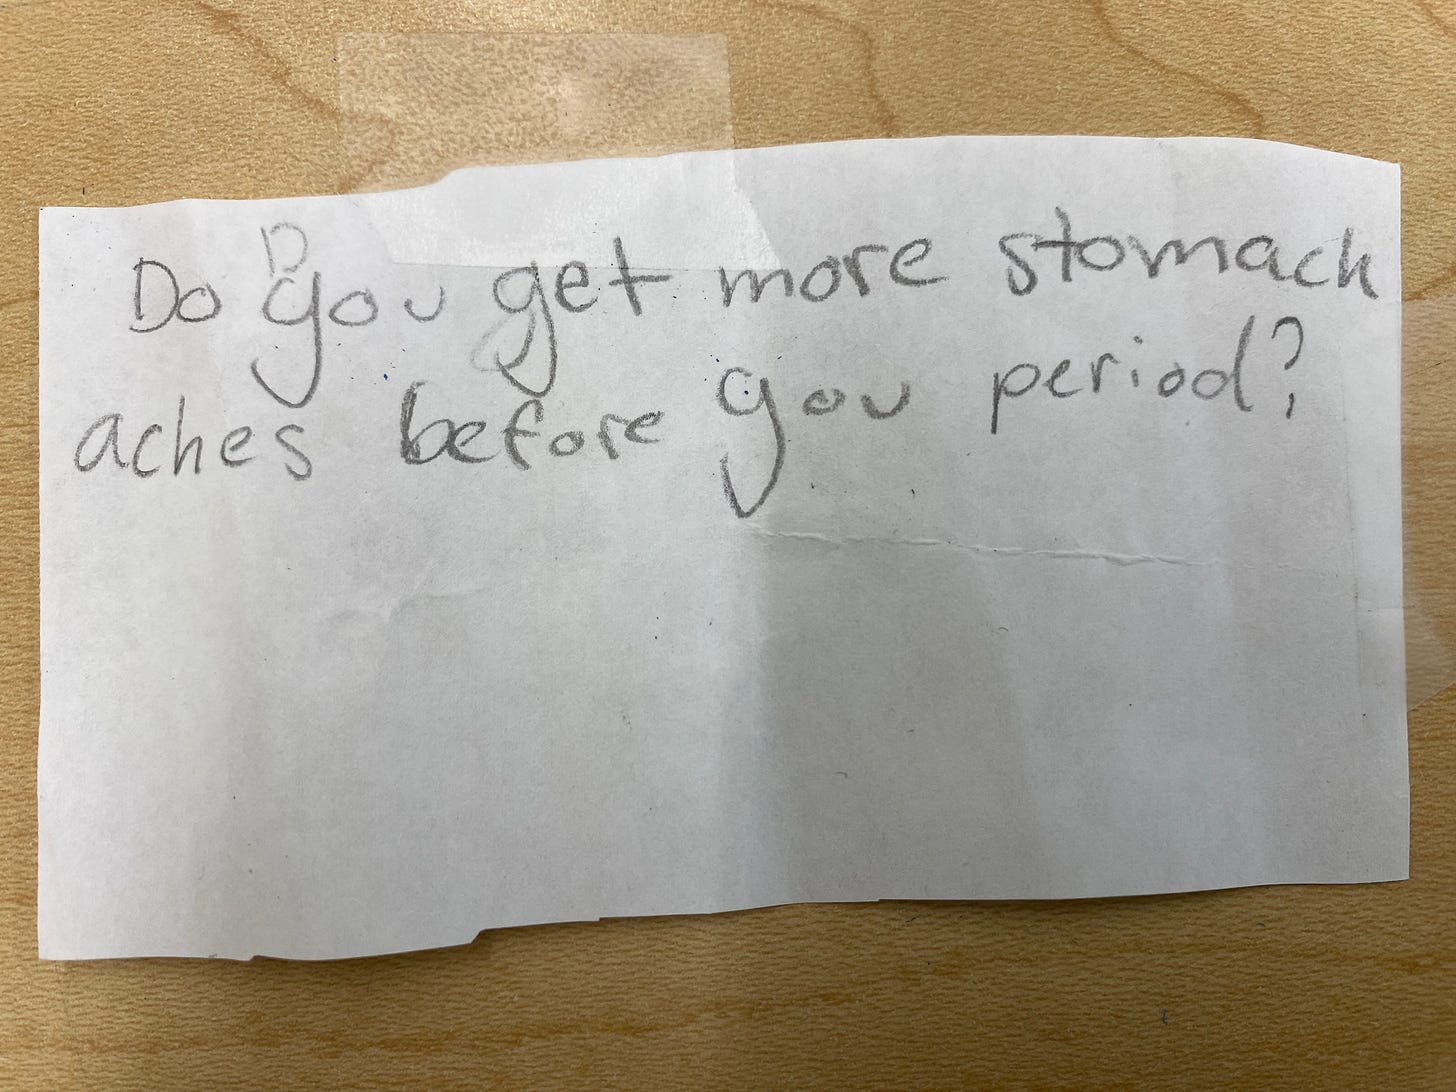 Do you get more stomach
aches before you period?